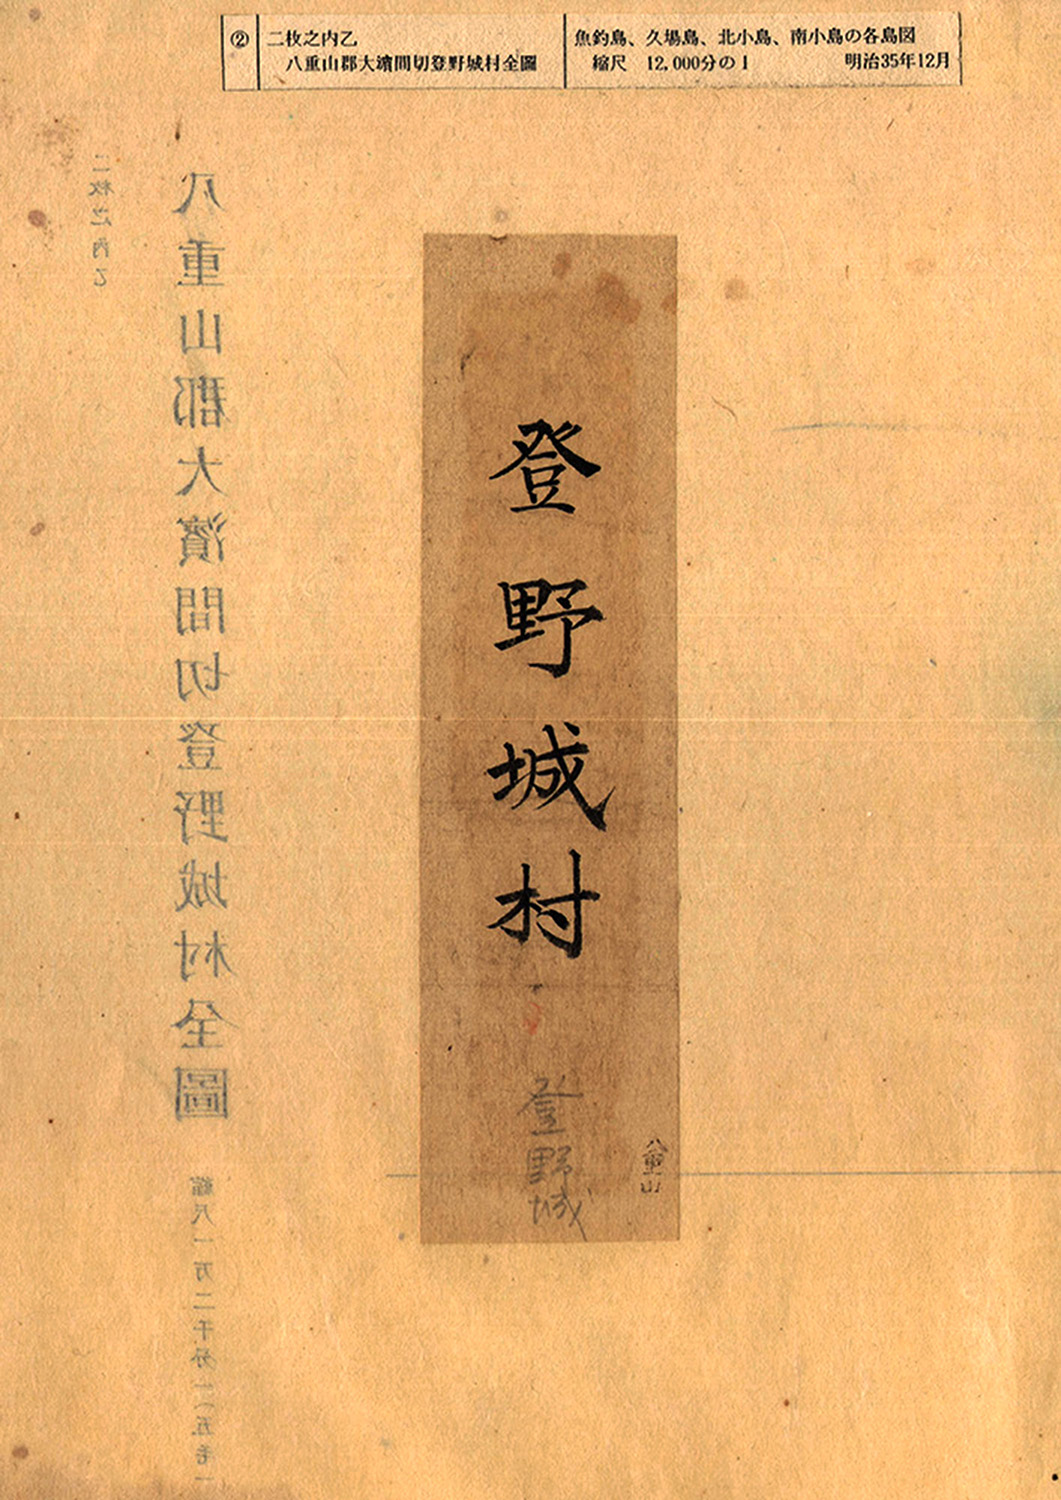 ② 二枚之内乙
八重山郡大濵間切登野城村全圖
魚釣島、久場島、北小島、南小島の各島図
縮尺 12,000分の1 明治35年12月
登野城村
登野城
八重山
二枚之内乙
八重山郡大濱間切登野城村全圖
縮尺一万二千分一